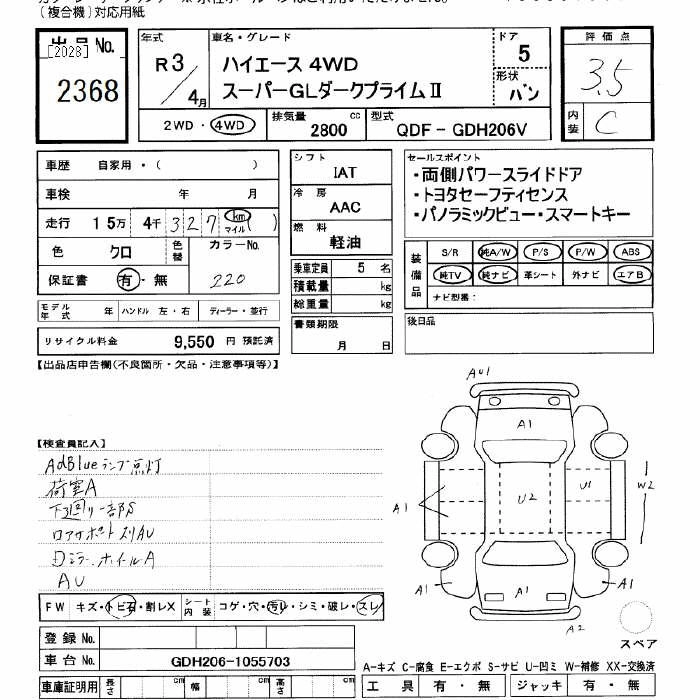 (複合機)対応用紙
出品No.
[2028]
2368
年式
R3/4月
車名・グレード
ハイエース 4WD
スーパーGLダークプライムⅡ
ドア
5
形状
バン
評価点
3.5
内装
C
2WD・4WD
排気量 2800 cc
型式 QDF-GDH206V
車歴 自家用・( )
車検 年 月
走行 15万 4千 327 km マイル ( )
色 クロ 色替 カラーNo. 220
保証書 有・無
モデル年式 年 ハンドル 左・右 ディーラー・並行
リサイクル料金 9,550 円 預託済
シフト
IAT
冷房
AAC
燃料
軽油
乗車定員 5 名
積載量 kg
総重量 kg
書類期限
月 日
セールスポイント
・両側パワースライドドア
・トヨタセーフティセンス
・パノラミックビュー・スマートキー
装備品
S/R 純A/W P/S P/W ABS
純TV 純ナビ 革シート 外ナビ エアB
ナビ型番:
後日品
【出品店申告欄(不良箇所・欠品・注意事項等)】
【検査員記入】
AdBlueランプ点灯
荷室A
下廻り一部S
ロアサポートスリAU
Dミラー、ホイールA
AU
AU1
A1
U2
U1
W2
A1
A1
A1
A1
A2
スペア
FW キズ・トビ石・割レX シート内装 コゲ・穴・汚レ・シミ・破レ・スレ
登録No.
車台No. GDH206-1055703
車庫証明用 長さ cm 幅 cm 高さ cm
A-キズ C-腐食 E-エクボ S-サビ U-凹ミ W-補修 XX-交換済
工具 有・無 ジャッキ 有・無